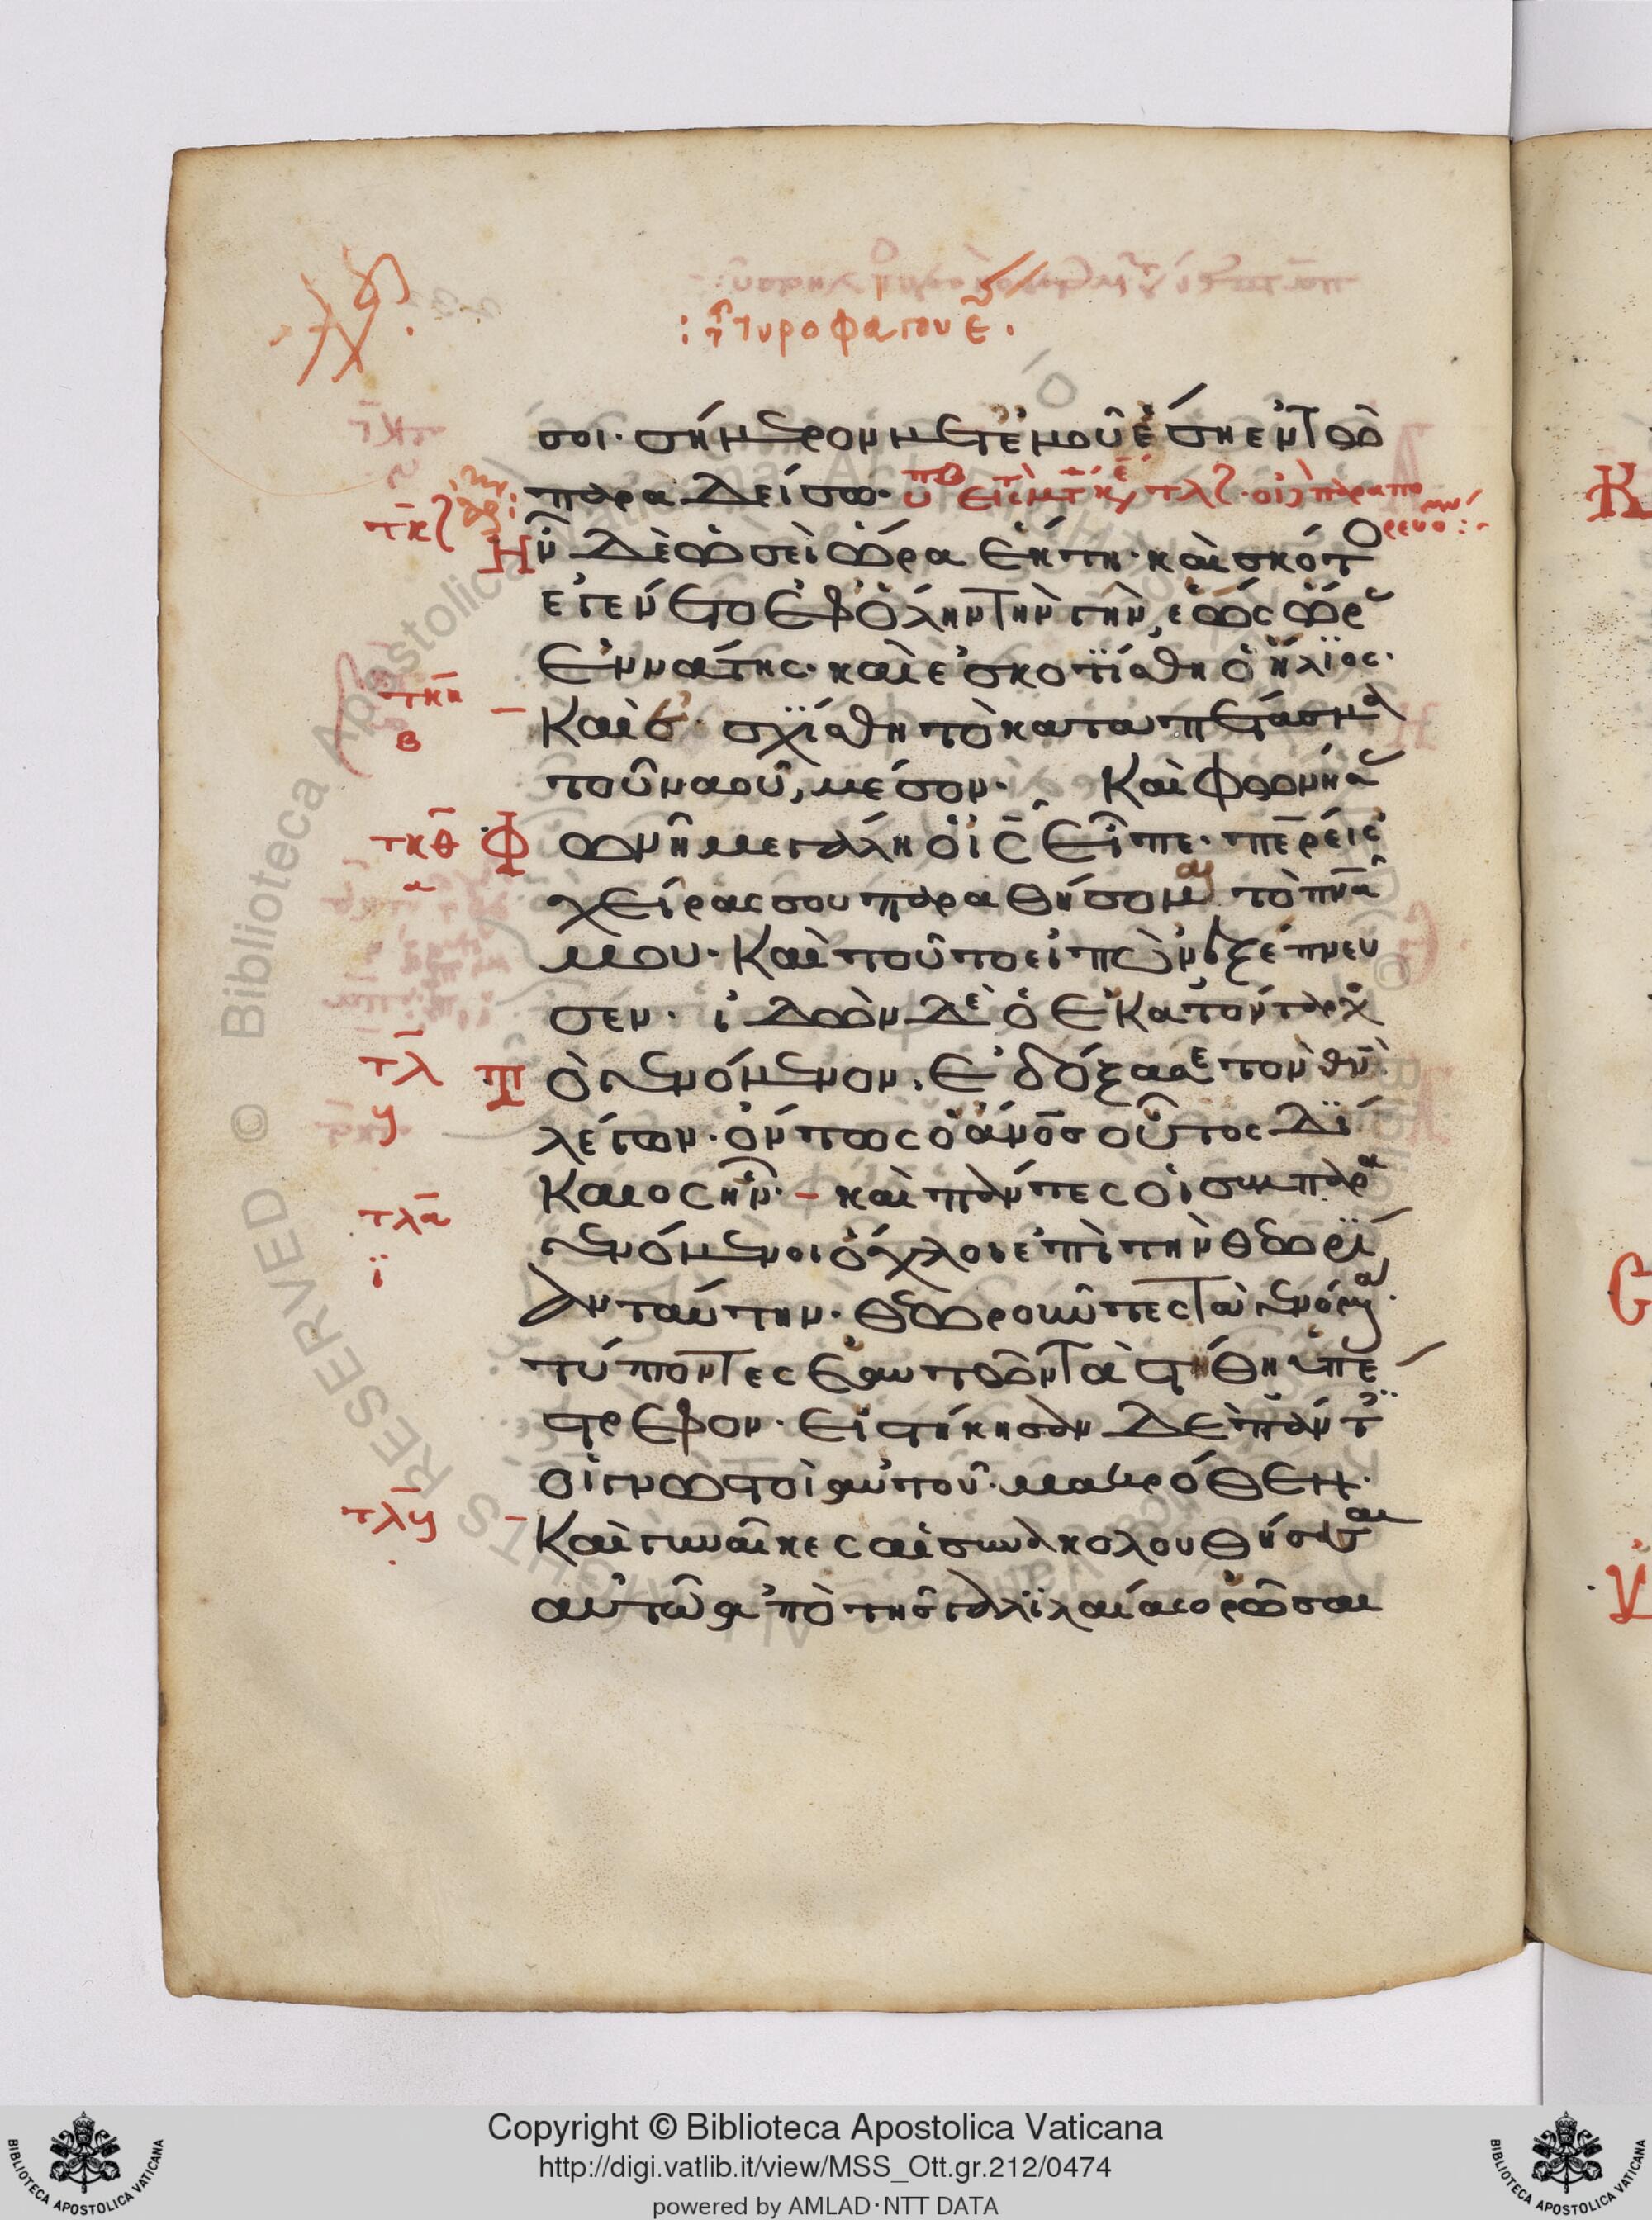 : τῇ τυροφάγου ε̄.
σοι· σήμερον μετ' ἐμοῦ ἔση ἐν τῶ
παραδείσω·
Ἦν δὲ ὡσεὶ ὥρα ἕκτη· καὶ σκότο
ἐγένετο ἐφ' ὅλην τὴν γῆν, ἕως ὥρ
ἐννάτης· καὶ ἐσκοτίσθη ὁ ἥλϊος·
Καὶ ἐσχΐσθη τὸ καταπέτασμα
τοῦ ναοῦ, μέσον· Καὶ φωνήσα
Φωνῆ μεγάλη ὁ ις εἶπε· περ εἰς
χεῖρας σου παραθήσομαι τὸ πνα
μου· Καὶ τοῦτο εἰπὼν ἐξέπνευ
σεν· ἰδὼν δὲ ὁ ἑκατόνταρχο
Τὸ γενόμενον. ἐδόξασε τὸν θν
λέγων· ὄντως ὁ ανος οὗτος δΐ
καιος ἦν· καὶ πάντες οἱ συμπαρα
γενόμενοι ὄχλοι ἐπὶ τὴν θεωρΐ
αν ταύτην· θεωροῦντες τὰ γενόμενα·
τύπτοντες ἑαυτῶν τὰ στήθη ὑπέ
στρεφον· εἱστήκησαν δὲ πάντ
οἱ γνωστοὶ αὐτοῦ· μακρόθεν·
Καὶ γυναῖκες αἱ συνακολουθήσασαι
αὐτῶ ἀπὸ τῆς γαλϊλαίας ὁρῶσαι
τκη
β
τκθ
α
τλ
τλα
ϊ
Copyright © Biblioteca Apostolica Vaticana
http://digi.vatlib.it/view/MSS_Ott.gr.212/0474
powered by AMLAD·NTT DATA
BIBLIOTECA APOSTOLICA VATICANA
BIBLIOTECA APOSTOLICA VATICANA